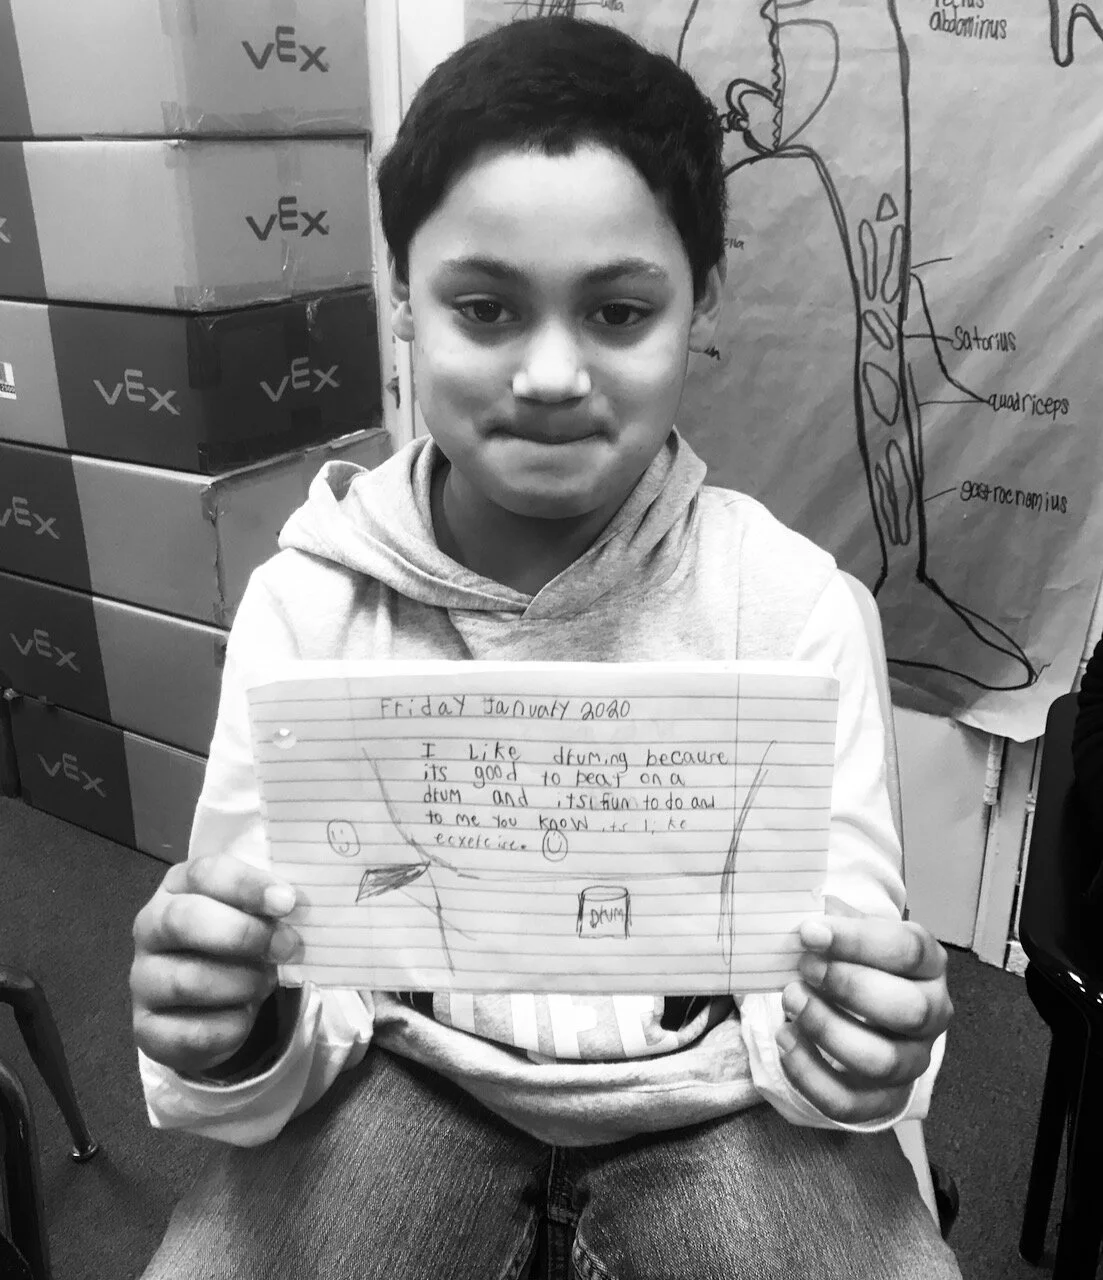 VEX
VEX
VEX VEX
VEX
VEX
VEX
abdominus
Satorius
quadriceps
gastrocnomius
Friday January 2020
I Like druming because
its good to beat on a
drum and its fun to do and
to me you know its like
ecxelcise.
Drum